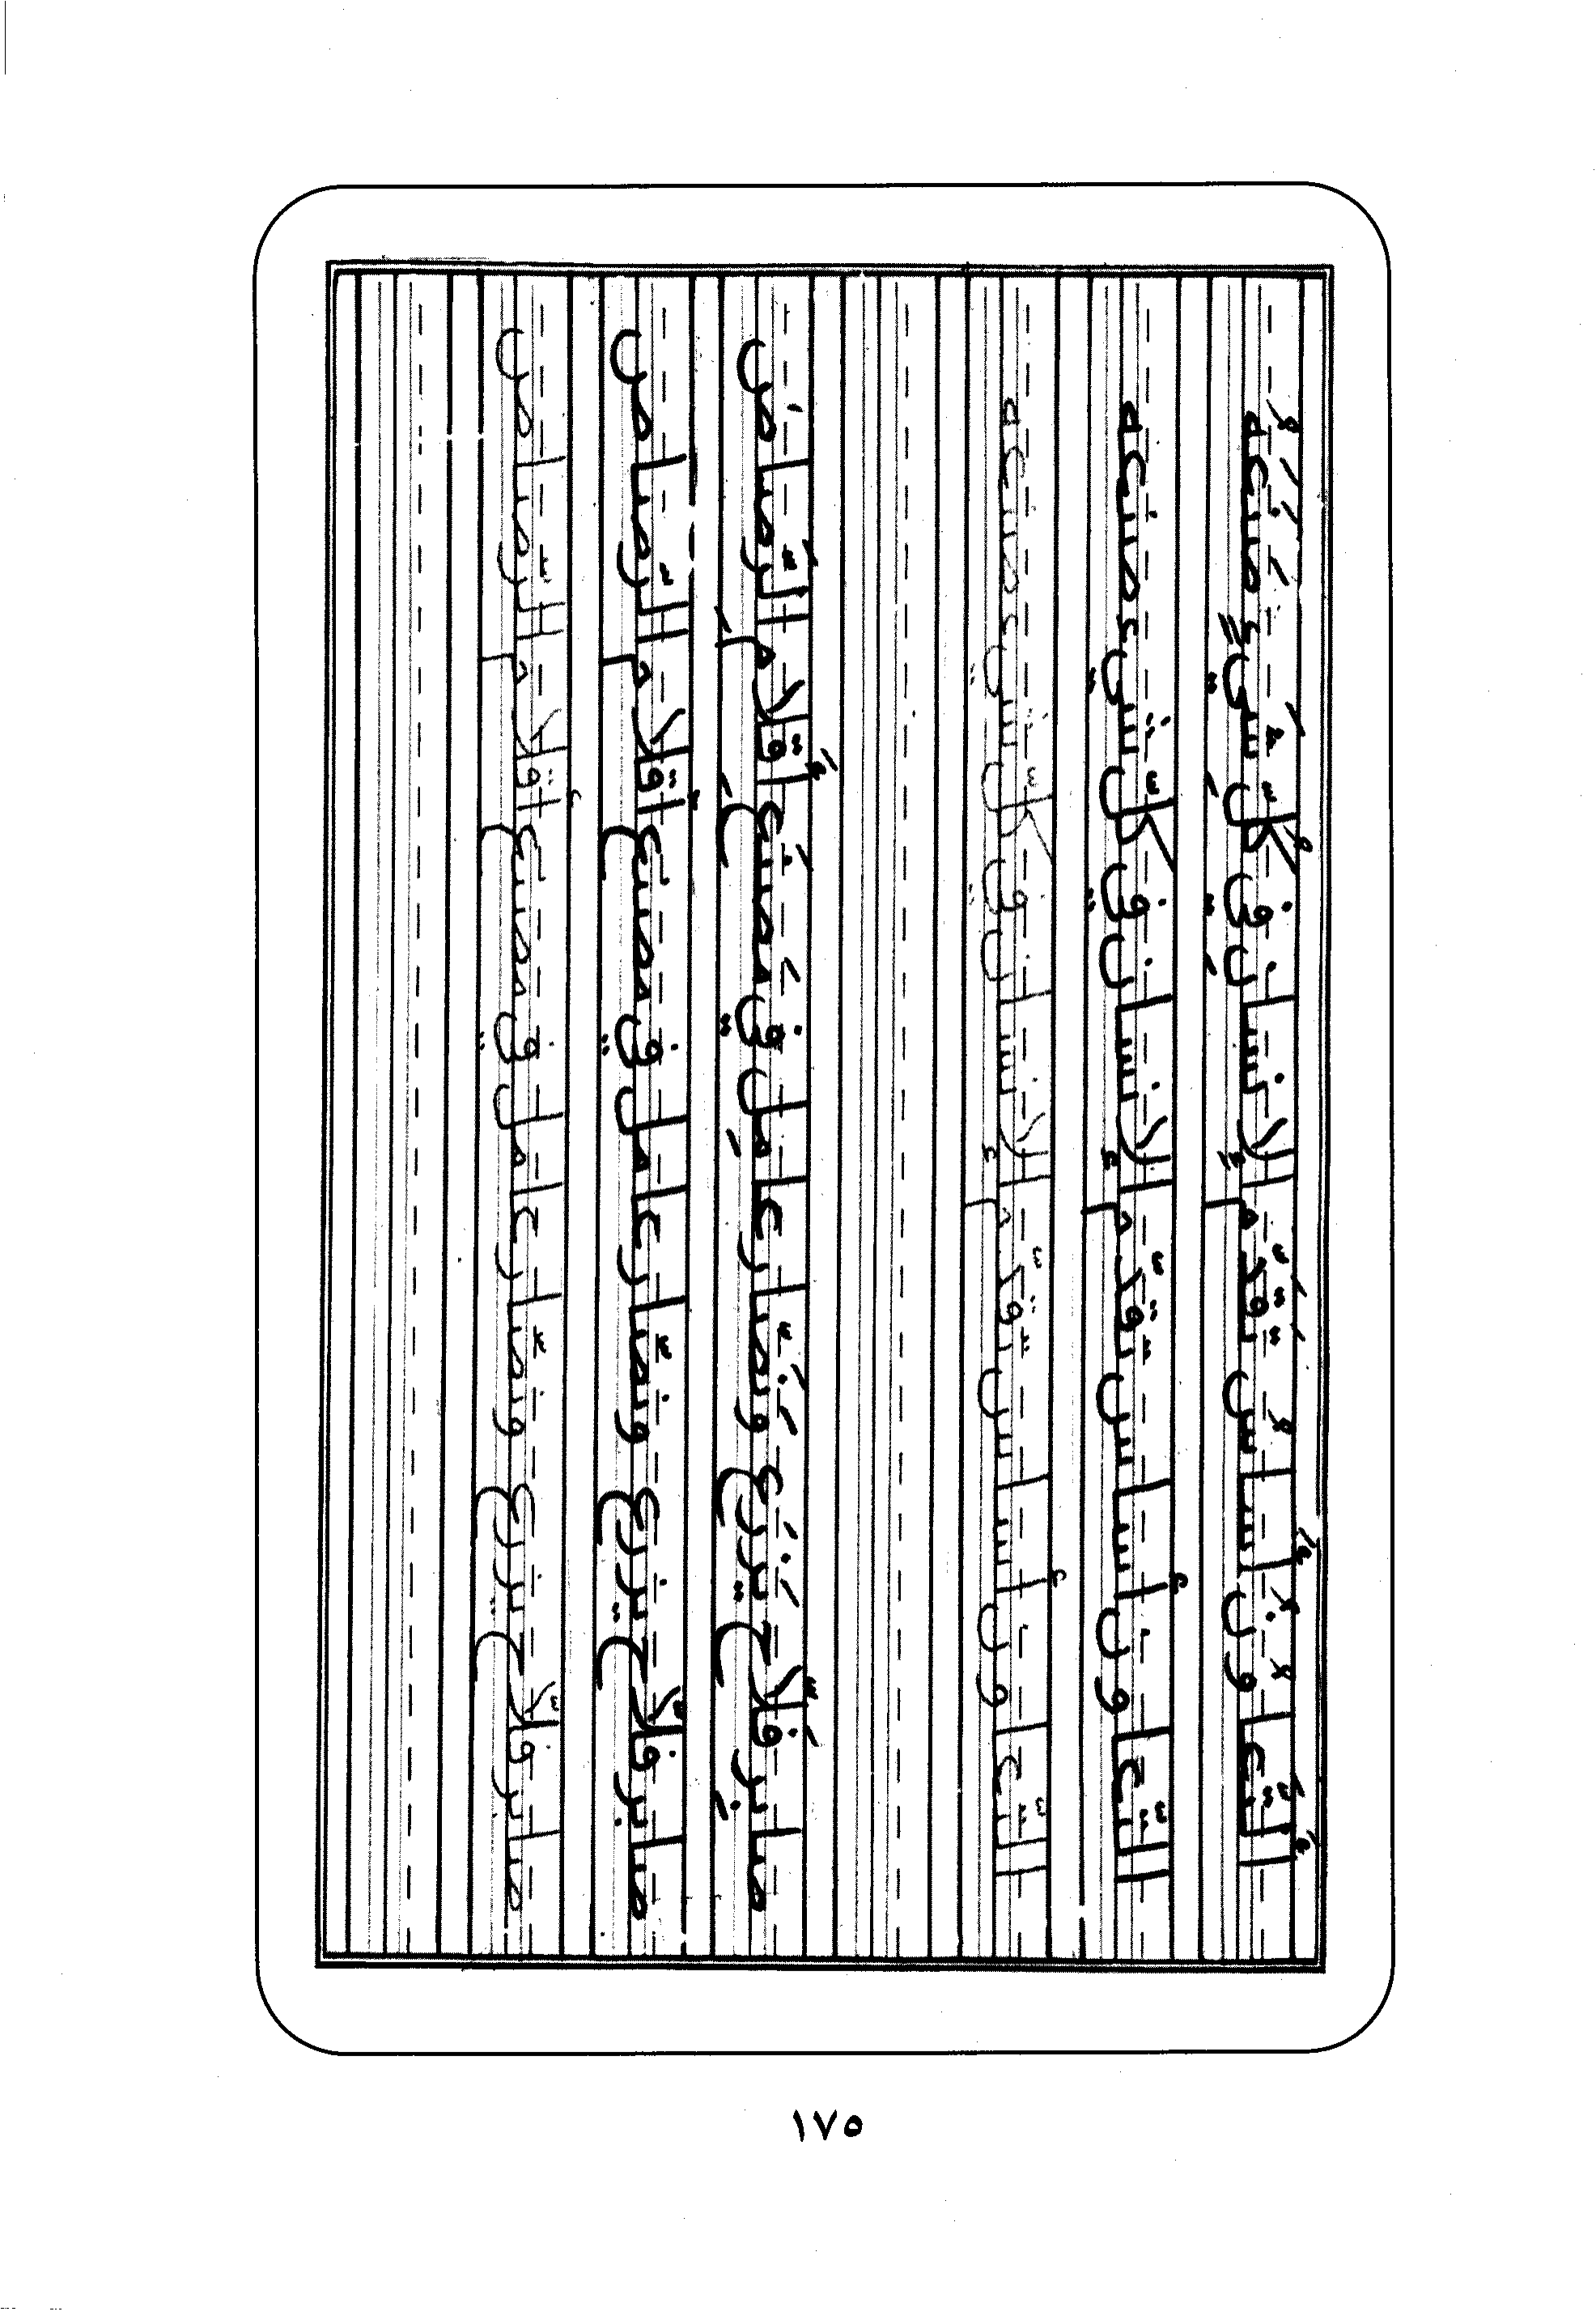 أَلتَّعاوُنُ أَساسُ تَقَدّم الإِنسانِ في كُلِّ شَيءٍ صَنَعَهُ
التّعاون أساس تقدّم الإنسان في كلّ شيء صنعه
التّعاون أساس تقدّم الإنسان في كلّ شيء صنعه
صابِر فَلاّح يَزرَع ونَضّار عامِل في مَصنَعِ أَقلامِ الرَّصاصَ
صابر فلاّح يزرع ونضّار عامل في مصنع أقلام الرّصاص
صابر فلاّح يزرع ونضّار عامل في مصنع أقلام الرّصاص
١٧٥